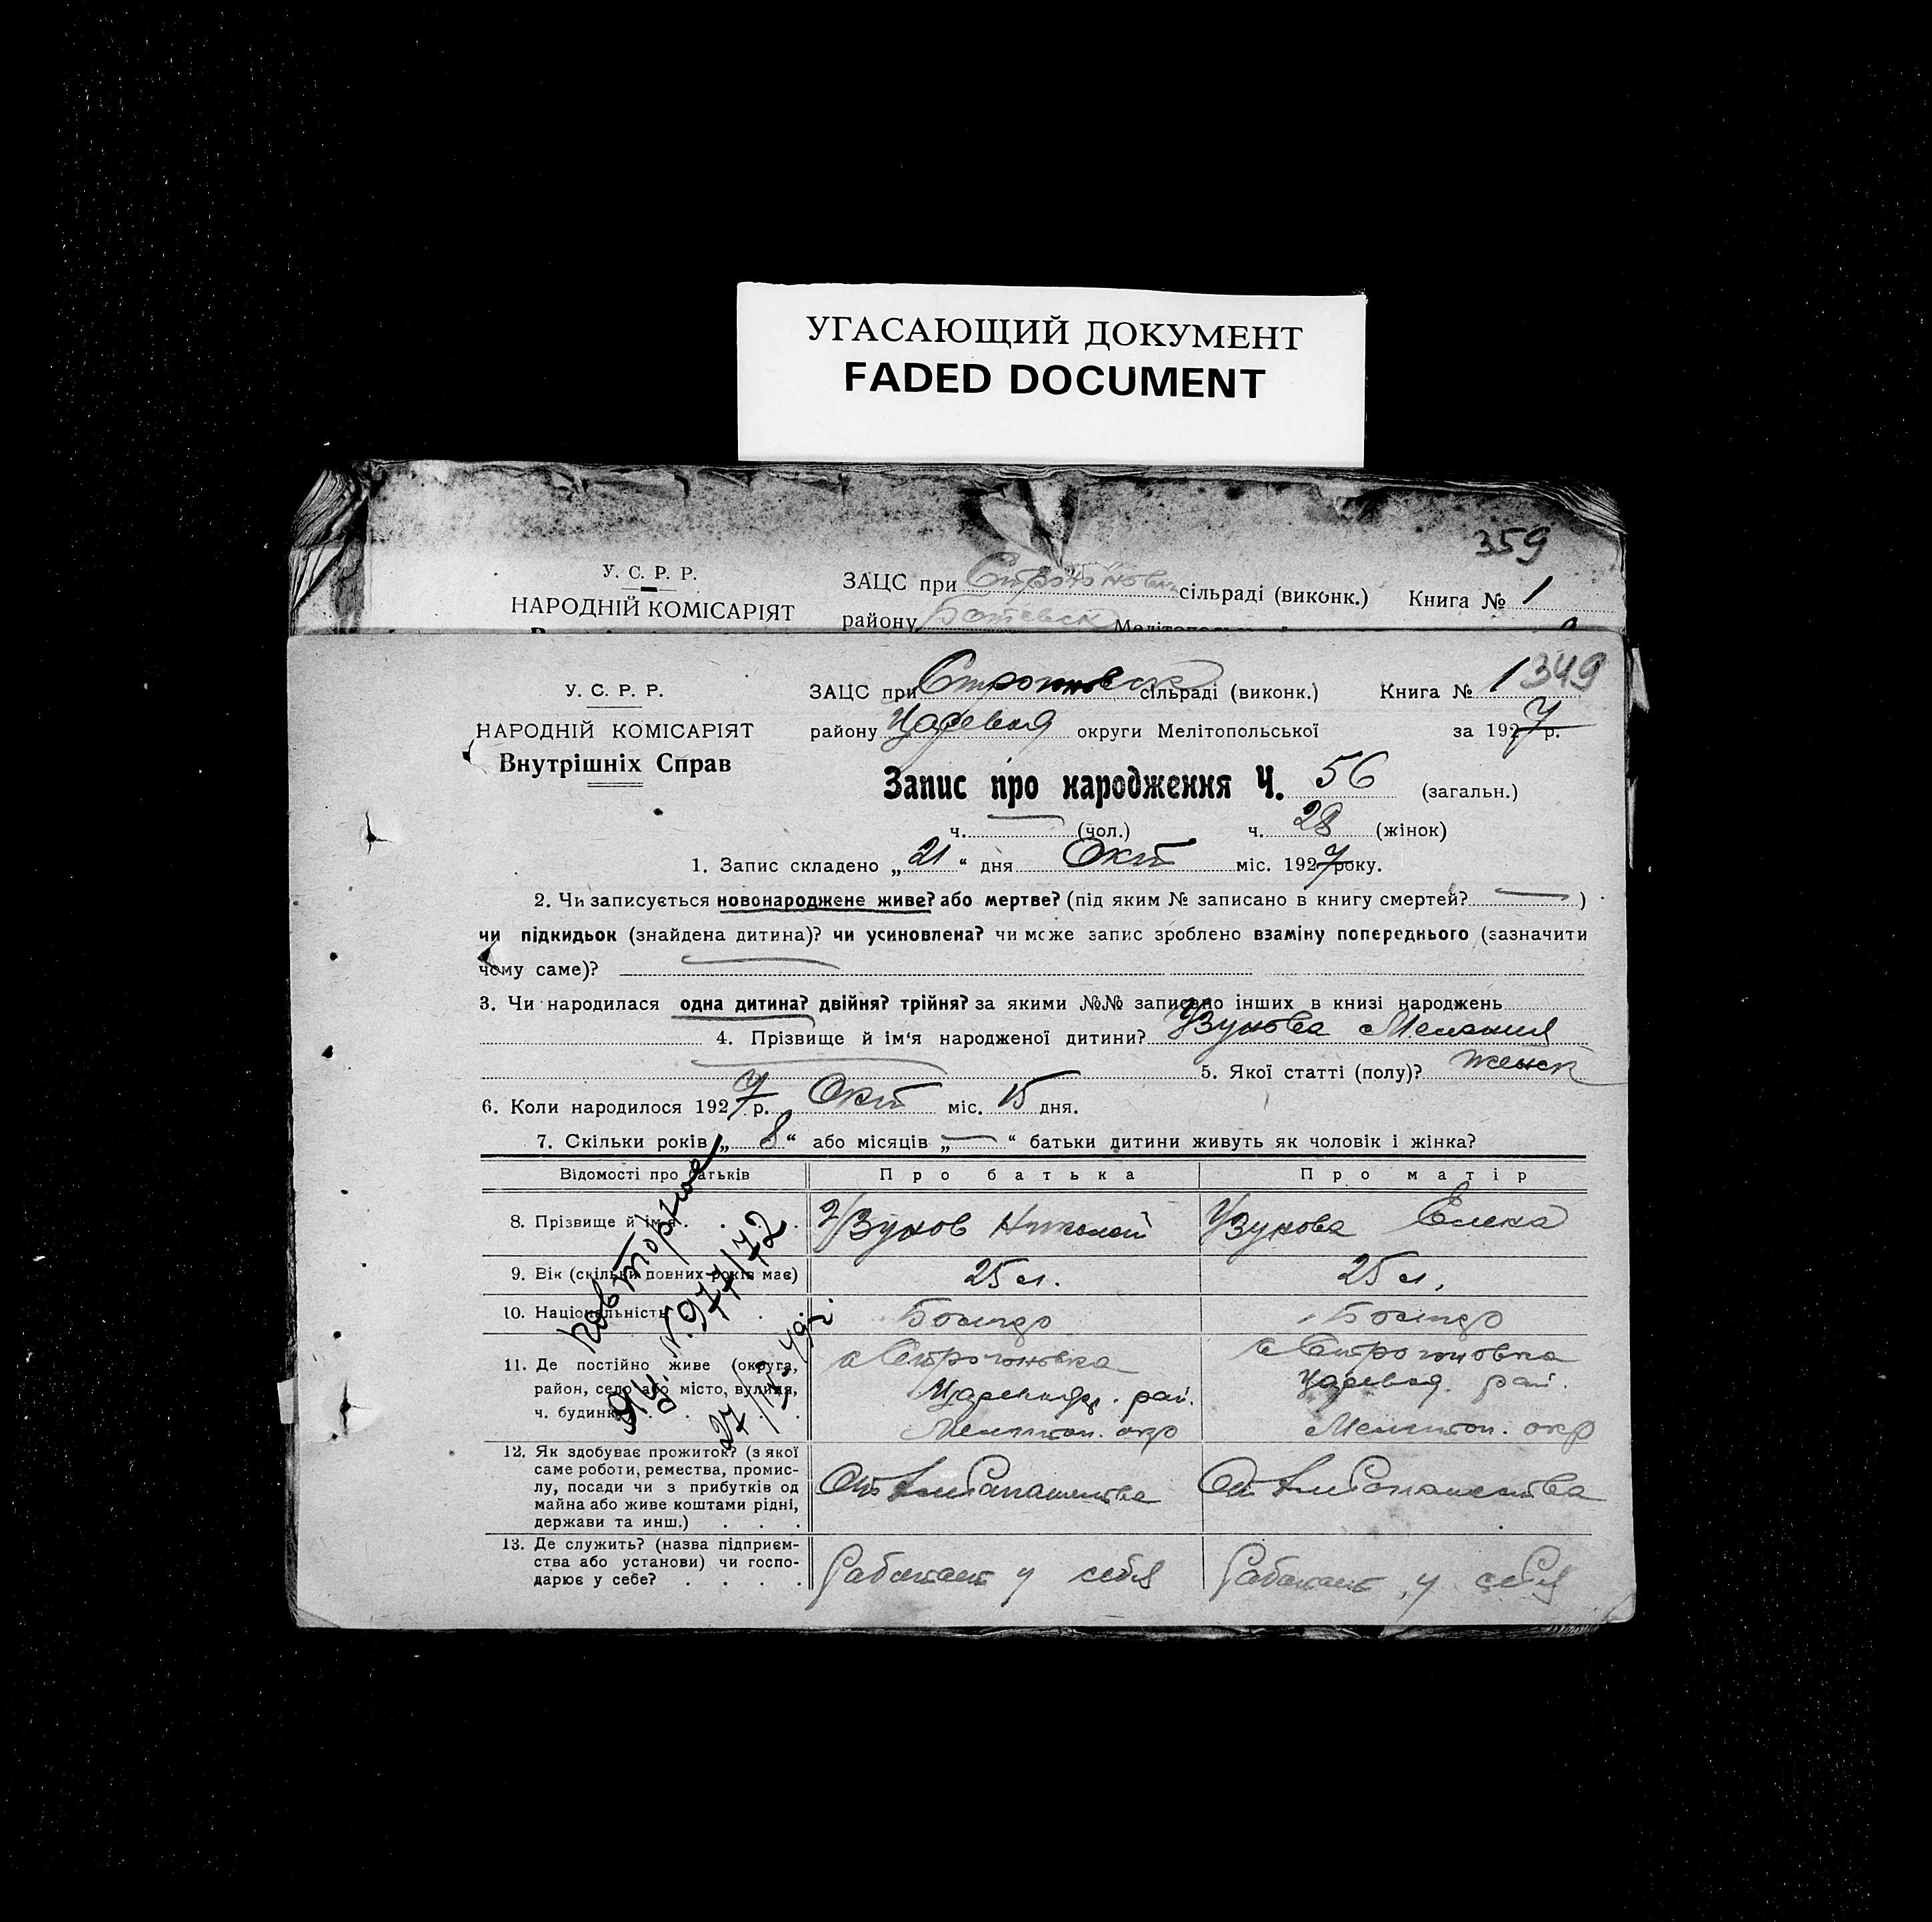 УГАСАЮЩИЙ ДОКУМЕНТ
FADED DOCUMENT
359
У. С. Р. Р.
НАРОДНІЙ КОМІСАРІЯТ
ЗАЦС при сільраді (виконк.) Книга № 1
району Ботевск
349
У. С. Р. Р.
НАРОДНІЙ КОМІСАРІЯТ
Внутрішніх Справ
ЗАЦС при сільраді (виконк.) Книга № 1
району округи Мелітопольської за 1927 р.
Запис про народження Ч. 56 (загальн.)
ч. — (чол.) ч. 28 (жінок)
1. Запис складено „21“ дня Окт міс. 1927 року.
2. Чи записується новонароджене живе? або мертве? (під яким № записано в книгу смертей? — )
чи підкидьок (знайдена дитина)? чи усиновлена? чи може запис зроблено взаміну попереднього (зазначити
чому саме)?
3. Чи народилася одна дитина? двійня? трійня? за якими №№ записано інших в книзі народжень
4. Прізвище й ім‘я народженої дитини? Узунова Мелания
5. Якої статті (полу)? женск
6. Коли народилося 1927 р. Окт міс. 15 дня.
7. Скільки років „8“ або місяців „—“ батьки дитини живуть як чоловік і жінка?
Відомості про батьків Про батька Про матір
8. Прізвище й ім‘я Узунов Николай Узунова Елена
9. Вік (скільки повних років має) 25 л. 25 л.
10. Національність
11. Де постійно живе (округа,
район, село або місто, вулиця,
ч. будинку
с Строгоновка
рай.
Мелитоп. окр
с Строгоновка
рай.
Мелитоп. окр
12. Як здобуває прожиток? (з якої
саме роботи, ремества, промис-
лу, посади чи з прибутків од
майна або живе коштами рідні,
держави та инш.)
От хлебопашества От хлебопашества
13. Де служить? (назва підприєм-
ства або установи) чи госпо-
дарює у себе?
Работает у себя Работает у себя
повторное
N. 977172